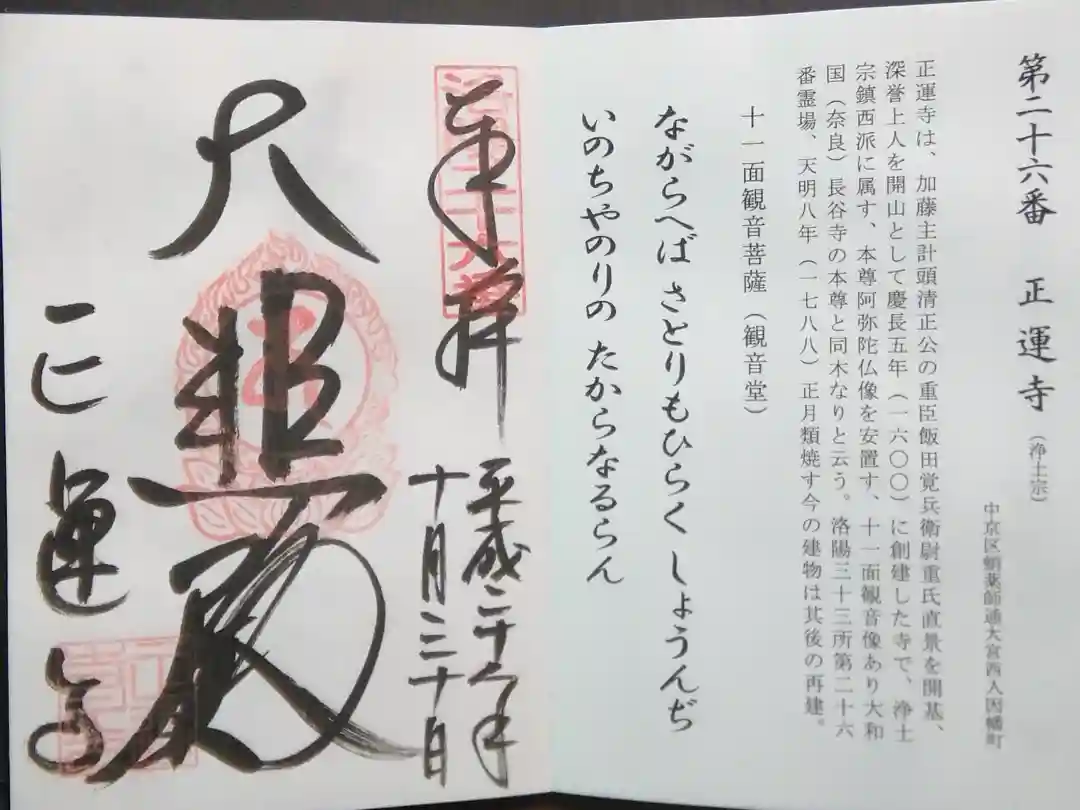 第二十六番　正運寺（浄土宗）
中京区蛸薬師通大宮西入因幡町
正運寺は、加藤主計頭清正公の重臣飯田覚兵衛尉重氏直景を開基、
深誉上人を開山として慶長五年（一六〇〇）に創建した寺で、浄土
宗鎮西派に属す、本尊阿弥陀仏像を安置す、十一面観音像あり大和
国（奈良）長谷寺の本尊と同木なりと云う。洛陽三十三所第二十六
番霊場、天明八年（一七八八）正月類焼す今の建物は其後の再建。
十一面観音菩薩（観音堂）
ながらへば さとりもひらく しょうんぢ
いのちやのりの たからなるらん
奉拝
平成二十八年
十月三十日
大悲殿
正運寺